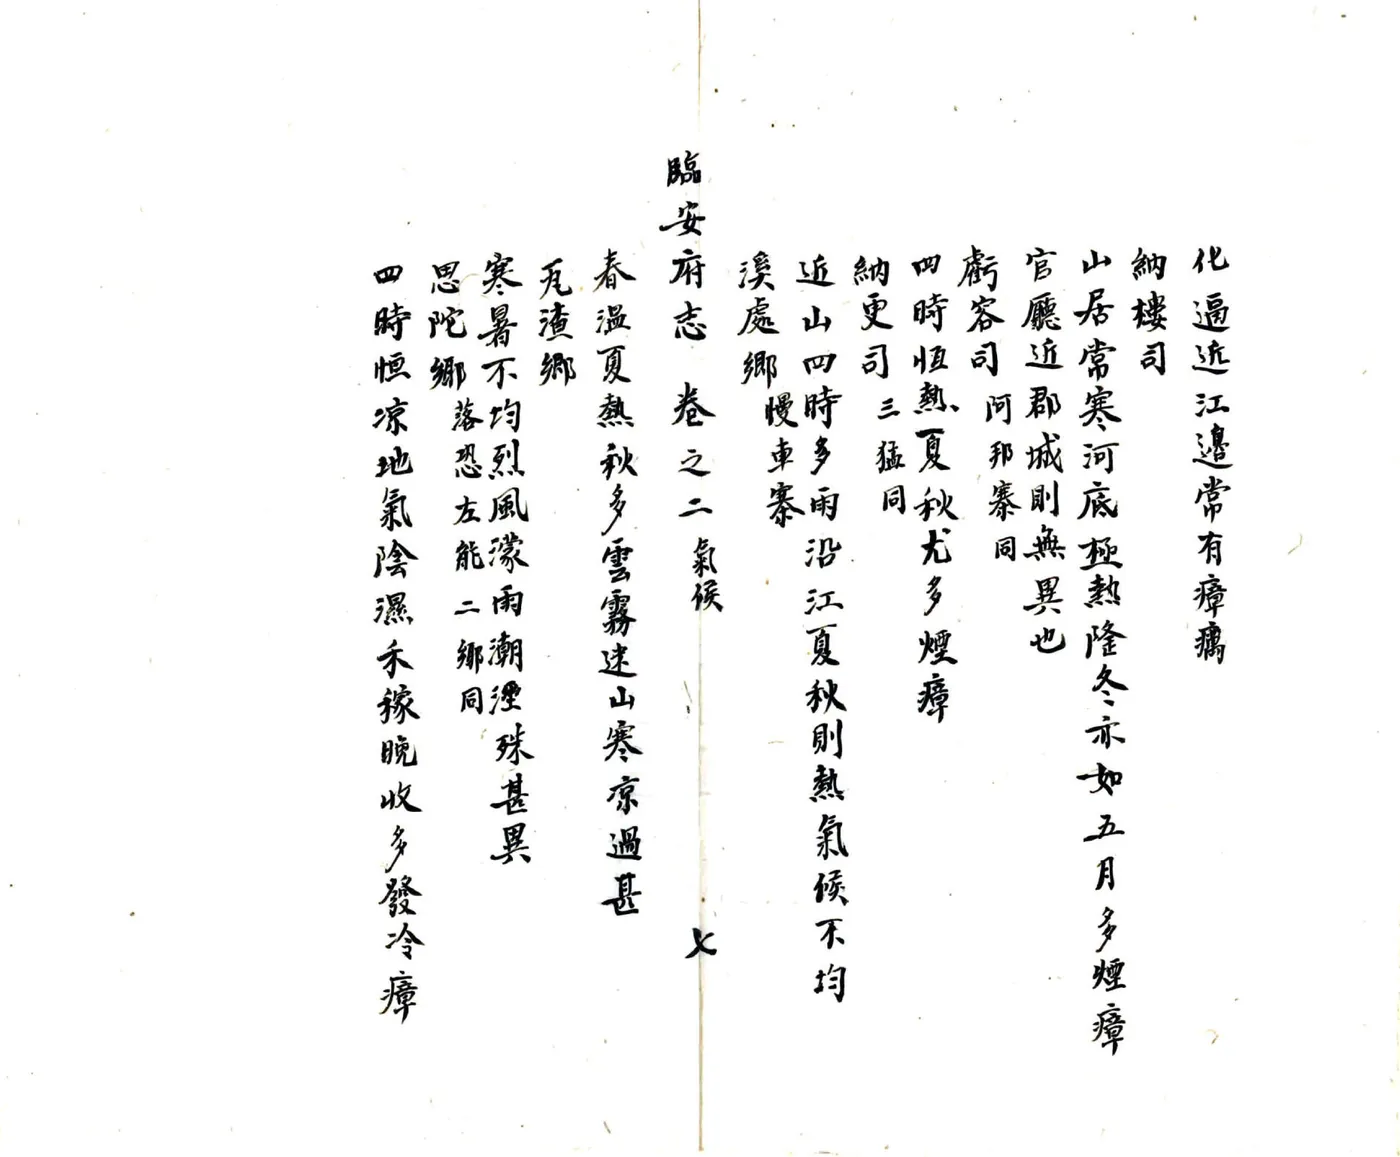 化逼近江邊常有瘴癘
納樓司
山居常寒河底極熱隆冬亦如五月多煙瘴
官廳近郡城則無異也
虧容司 阿邦寨同
四時恆熱夏秋尤多煙瘴
納更司 三猛同
近山四時多雨沿江夏秋則熱氣候不均
溪處鄉 慢車寨
臨安府志 卷之二 氣候 七
春溫夏熱秋多雲霧迷山寒凉過甚
瓦渣鄉
寒暑不均烈風濛雨潮溼殊甚異
思陀鄉 落恐左能二鄉同
四時恒凉地氣陰濕禾稼晚收多發冷瘴